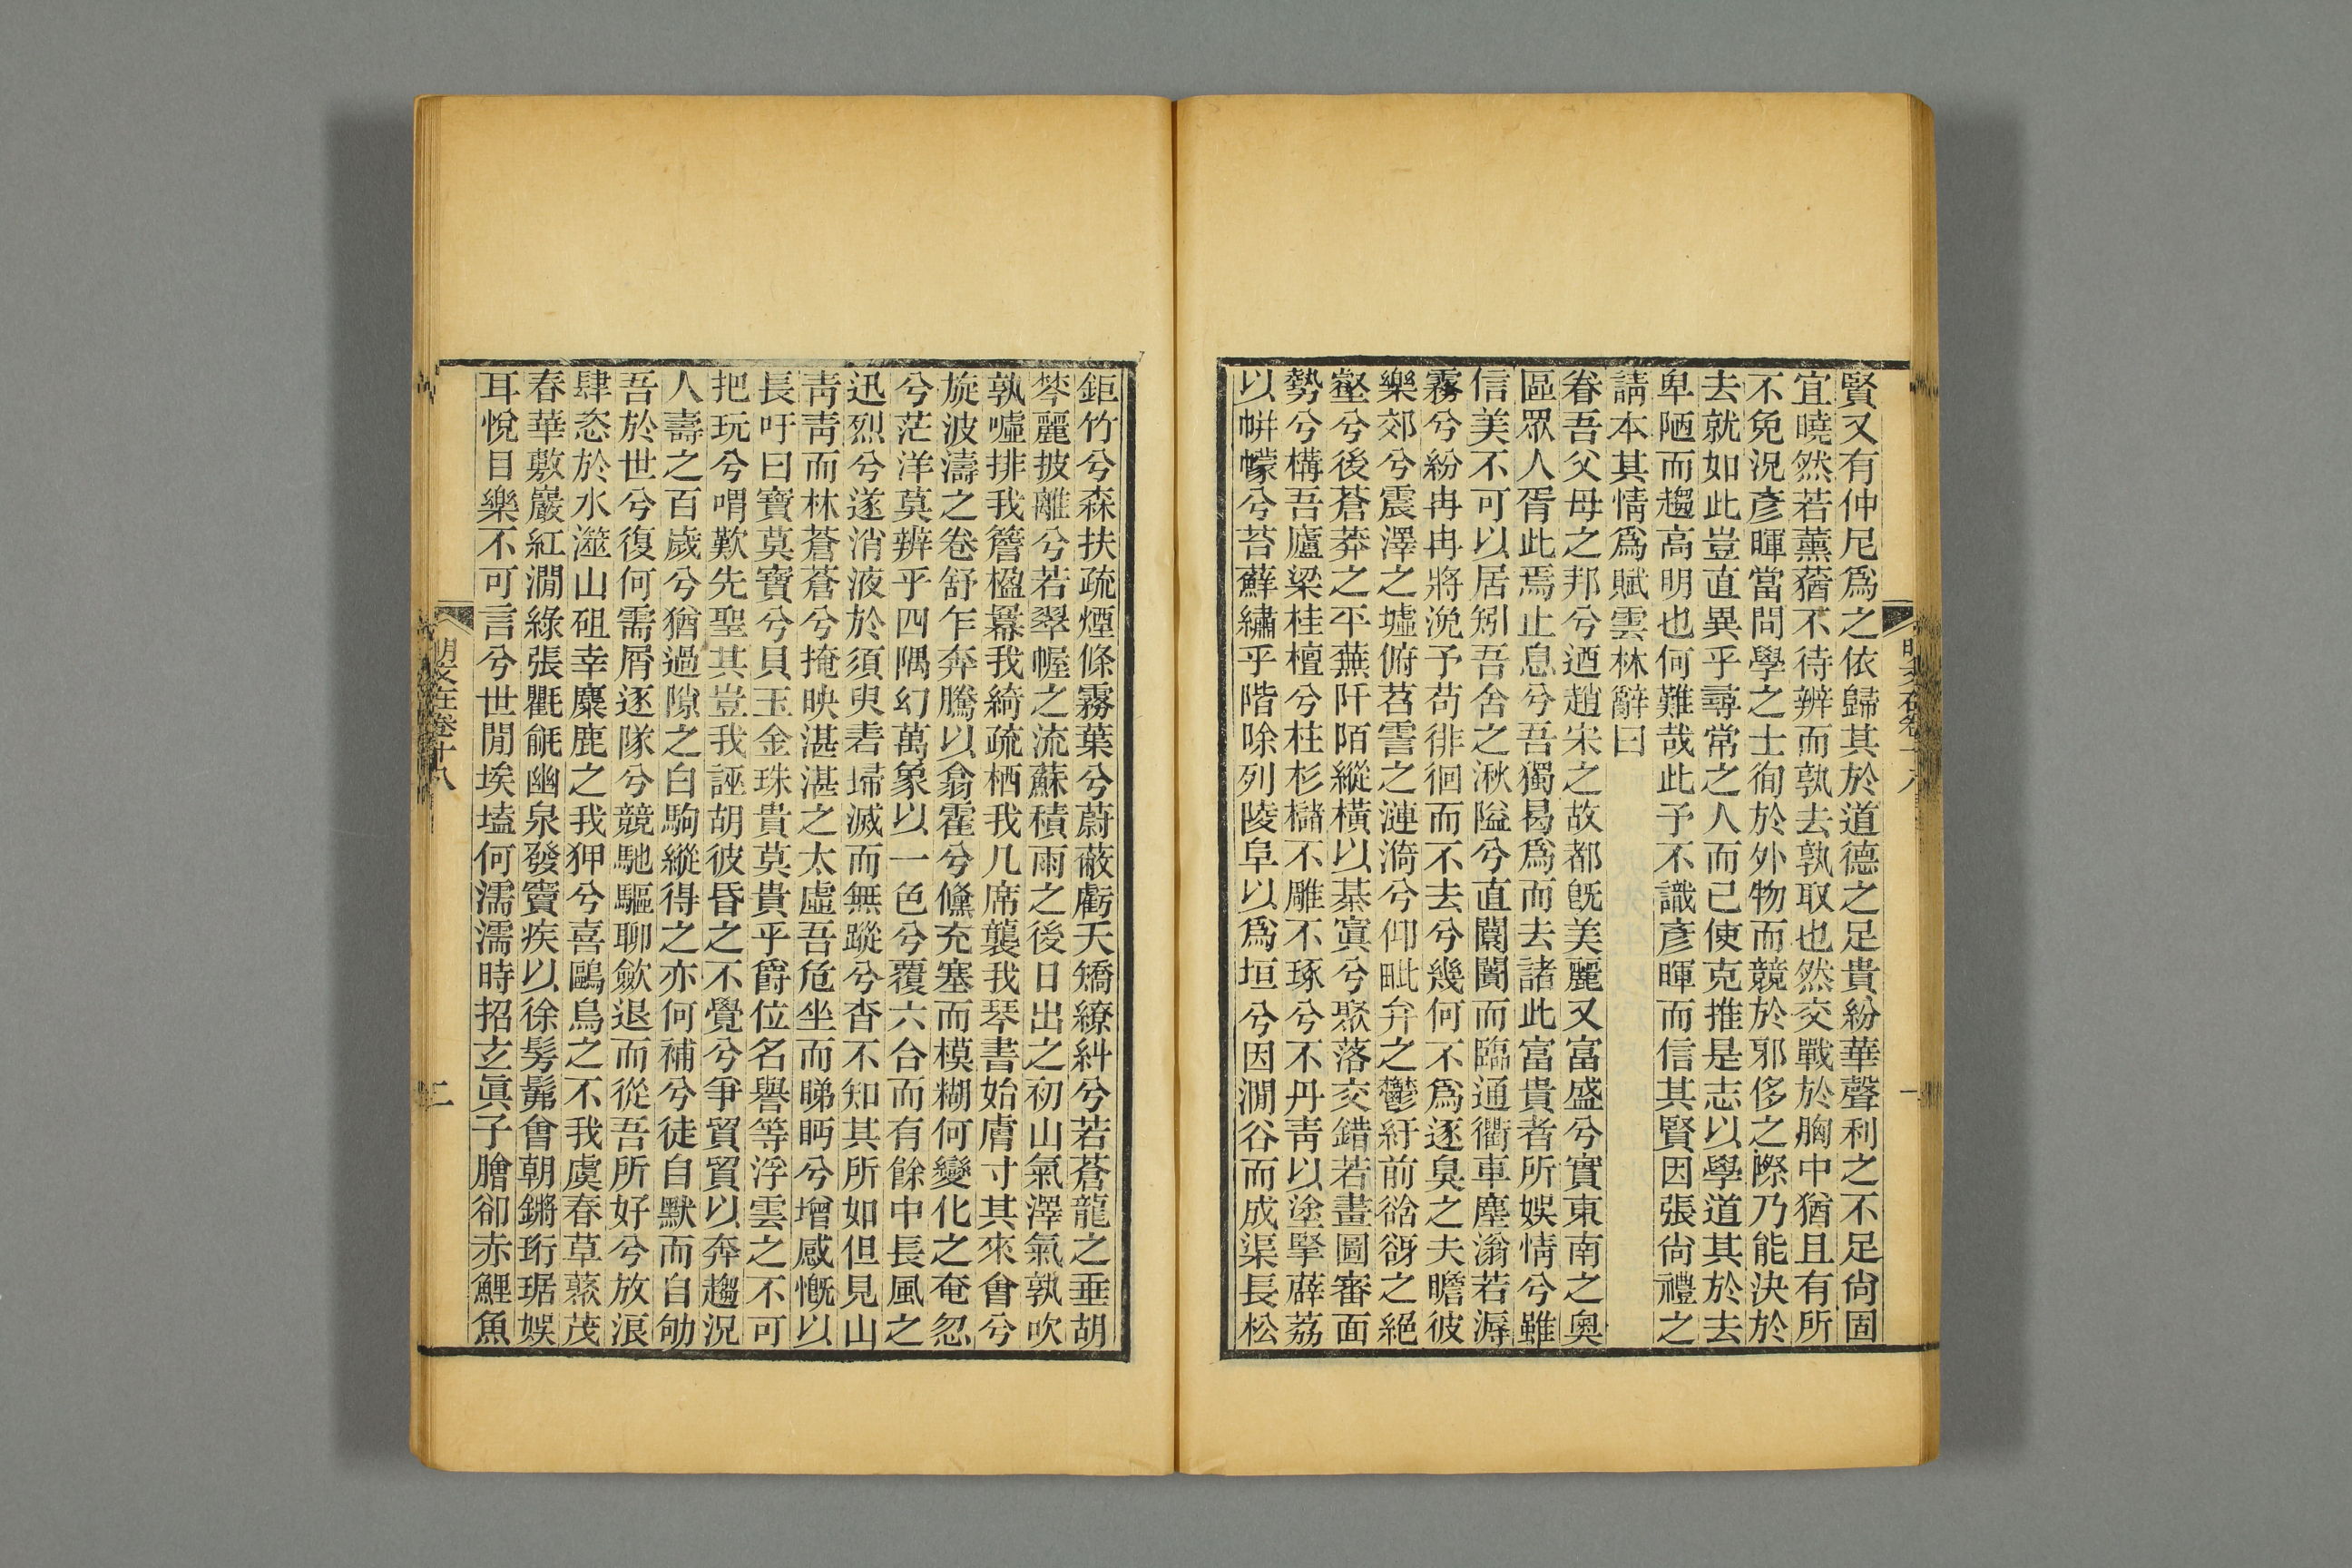 賢又有仲尼爲之依歸其於道德之足貴紛華聲利之不足尙固
宜曉然若薰蕕不待辨而孰去孰取也然交戰於胸中猶且有所
不免況彥暉當問學之士徇於外物而競於邪侈之際乃能決於
去就如此豈直異乎尋常之人而已使克推是志以學道其於去
卑陋而趨高明也何難哉此予不識彥暉而信其賢因張尙禮之
請本其情爲賦雲林辭曰
眷吾父母之邦兮迺趙宋之故都旣美麗又富盛兮實東南之奧
區眾人胥此焉止息兮吾獨曷爲而去諸此富貴者所娛情兮雖
信美不可以居矧吾舍之湫隘兮直闤闠而臨通衢車塵滃若溽
霧兮紛冉冉將浼予苟徘徊而不去兮幾何不爲逐臭之夫瞻彼
樂郊兮震澤之墟俯苕霅之漣漪兮仰毗弁之鬱紆前谽谺之絕
壑兮後蒼莽之平蕪阡陌縱橫以棊寘兮聚落交錯若畫圖審面
勢兮構吾廬梁桂檀兮柱杉櫧不雕不琢兮不丹靑以塗堅薜荔
以帡幪兮苔蘚繡乎階除列陵阜以爲垣兮因澗谷而成渠長松
鉅竹兮森扶疏煙條霧葉兮蔚蔽虧天矯繚糾兮若蒼龍之垂胡
棽麗披離兮若翠幄之流蘇積雨之後日出之初山氣澤氣孰吹
孰噓排我簷楹羃我綺疏栖我几席襲我琴書始膚寸其來會兮
旋波濤之卷舒乍奔騰以翕霍兮儵充塞而模糊何變化之奄忽
兮茫洋莫辨乎四隅幻萬象以一色兮覆六合而有餘中長風之
迅烈兮遂消液於須臾砉埽滅而無蹤兮杳不知其所如但見山
靑靑而林蒼蒼兮掩映湛湛之太虛吾危坐而睇眄兮增感慨以
長吁曰寶莫寶兮貝玉金珠貴莫貴乎爵位名譽等浮雲之不可
把玩兮喟歎先聖其豈我誣胡彼昏之不覺兮爭貿貿以奔趨況
人壽之百歲兮猶過隙之白駒縱得之亦何補兮徒自默而自劬
吾於世兮復何需屑逐隊兮競馳驅聊歛退而從吾所好兮放浪
肆恣於水澨山砠幸麋鹿之我狎兮喜鷗鳥之不我虞春草蔙茂
春華敷巖紅澗綠張氍毹幽泉發竇疾以徐髣髴會朝鏘珩琚娛
耳悅目樂不可言兮世閒埃壒何濡濡時招玄眞子膾卻赤鯉魚
明文在卷十八
二